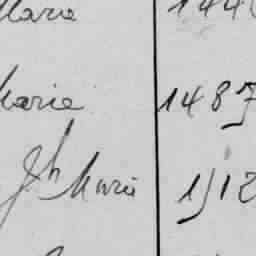 Marie 144
Marie 1487
Jh Marie 1512